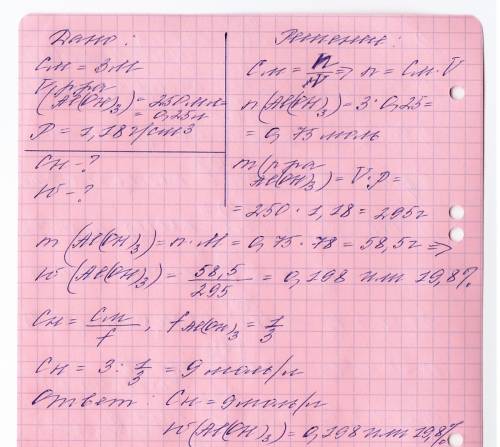 Дано:
См = 3М
Vр-ра
(Al(OH)3) = 250мл =
= 0,25л
P = 1,18г/см3
Сн - ?
W - ?
Решение:
См = n/V => n = См·V
n(Al(OH)3) = 3·0,25 =
= 0,75 моль
m(р-ра
Al(OH)3) = V·P =
= 250·1,18 = 295г
m(Al(OH)3) = n·M = 0,75·78 = 58,5г =>
W(Al(OH)3) = 58,5/295 = 0,198 или 19,8%
Сн = См/f, f Al(OH)3 = 1/3
Сн = 3 : 1/3 = 9 моль/л
Ответ: Сн = 9моль/л
W(Al(OH)3) = 0,198 или 19,8%